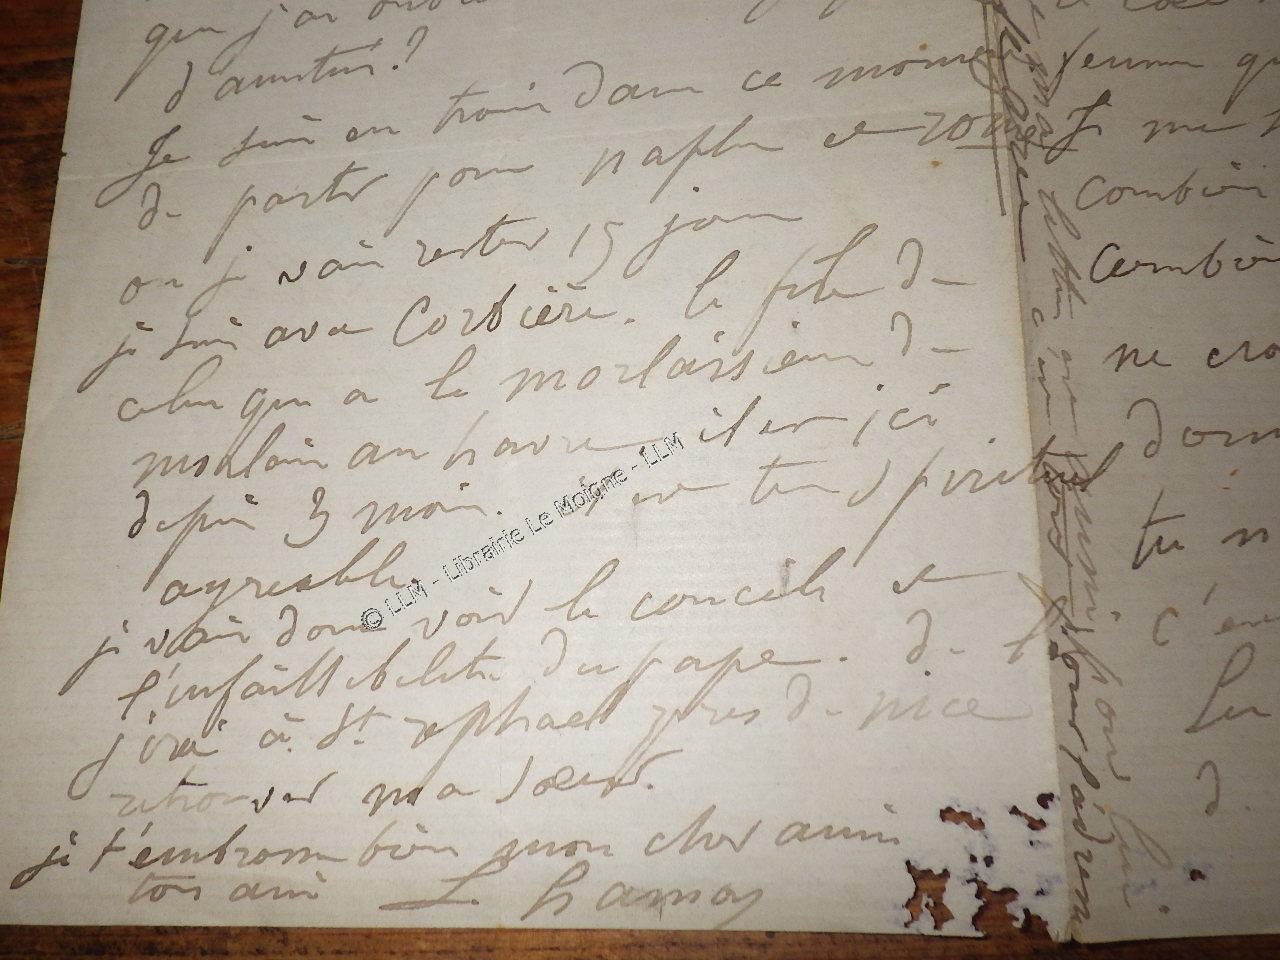 que j'ai
d'amitié?
Je suis en train dans ce moment
de partir pour naples et rome
ou je vais rester 15 jours
je suis avec Corbière. le fils de
celui qui a le morlaissien de
morlaix au havre. il est ici
depuis 3 mois. il est très spirituel
agreable.
je vais donc voir le concile et
l'infaillibilité du pape. de là
j'irai à St. rephael pres de nice
retrouver ma soeur.
je t'embrasse bien mon cher ami
ton ami L. hamon
© LLM - Librairie Le Moigne - LLM
femme
Je me
Combien
Combien
ne
donn
tu n
c'es
d.
ma lettre
pour lui
pour l'adresse